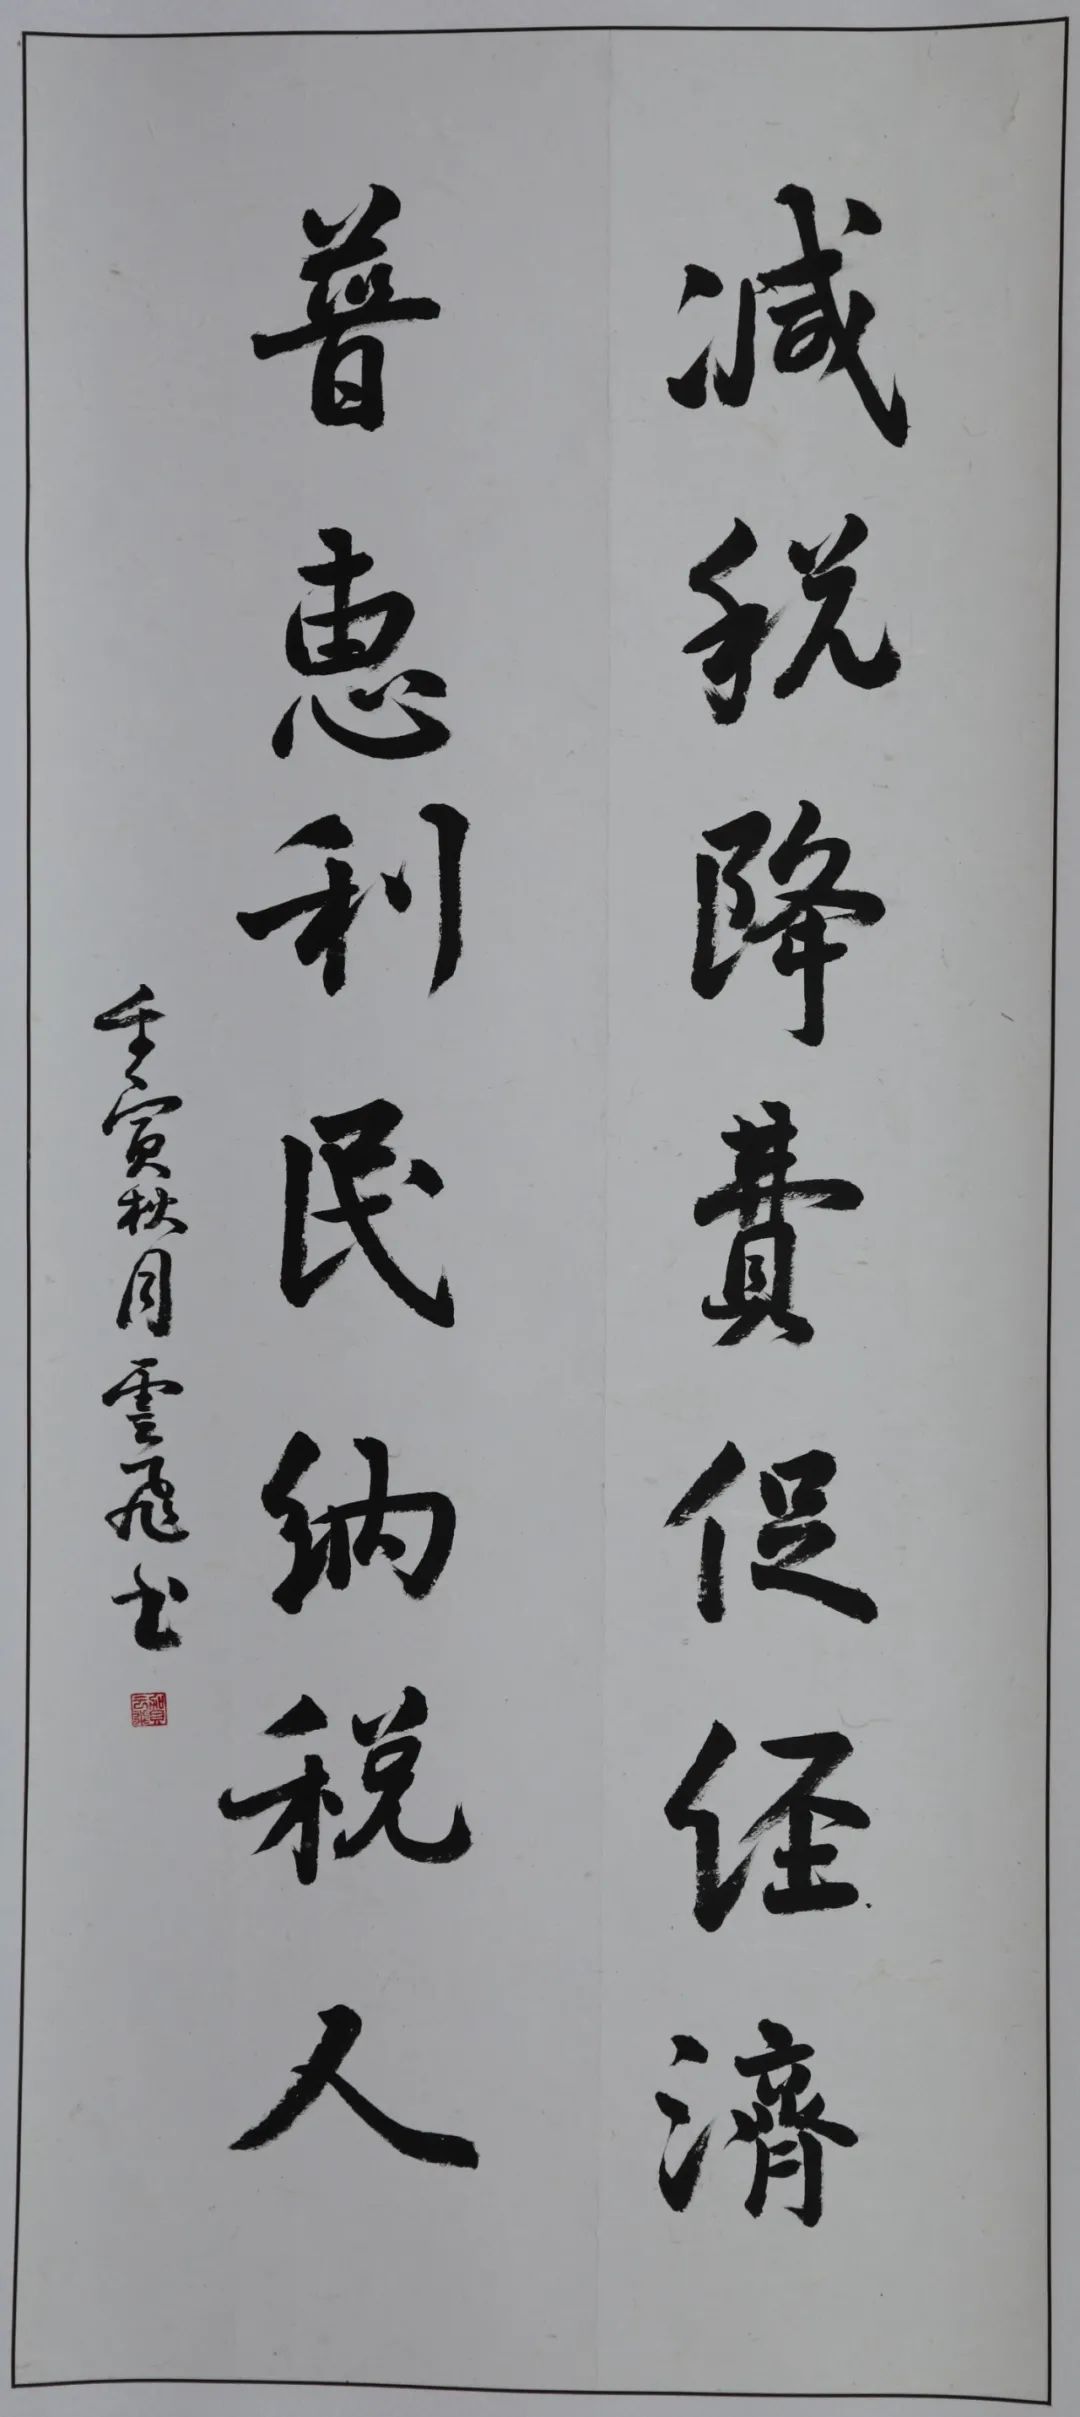 减税降費促经濟
普惠利民纳税人
壬寅秋月雲飛书